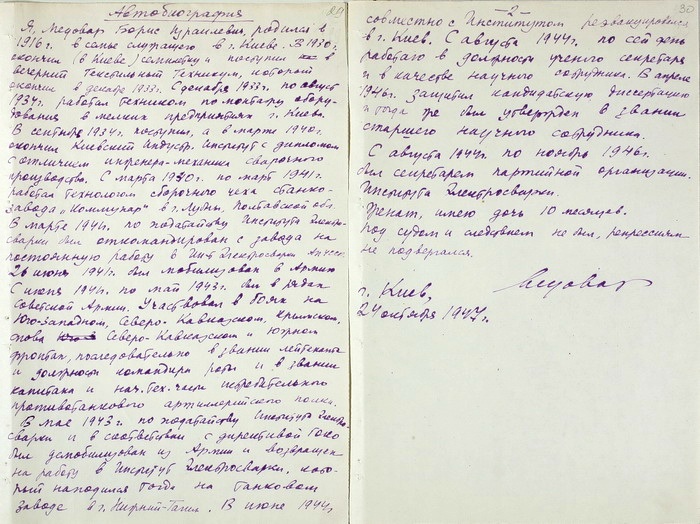 29
Автобиография
Я, Медовар Борис Израилевич, родился в
1916 г. в семье служащего в г. Киеве. В 1930 г.
окончил (в Киеве) семилетку и поступил в
вечерний Текстильный Техникум, который
окончил в декабре 1933 г. С декабря 1933 г. по август
1934 г. работал техником по монтажу обору-
дования в мелких предприятиях г. Киева.
В сентябре 1934 г. поступил, а в марте 1940 г.
окончил Киевский Индустр. Институт с дипломом
с отличием инженера-механика сварочного
производства. С марта 1940 г. по март 1941 г.
работал технологом сборочного цеха станко-
завода „Коммунар" в г. Лубны, Полтавской обл.
В марте 1941 г. по ходатайству Института Электро-
сварки был откомандирован с завода на
постоянную работу в Инст. Электросварки
26 июня 1941 г. был мобилизован в Армию
С июня 1941 г. по май 1943 г. был в рядах
Советской Армии. Участвовал в боях на
Юго-Западном, Северо-Кавказском, Крымском,
снова Северо-Кавказском и Южном
фронтах, последовательно в звании лейтенанта
и должности командира роты и в звании
капитана и нач. тех. части истребительного
противотанкового артиллерийского полка.
В мае 1943 г. по ходатайству Института Электро-
сварки и в соответствии с директивой ГОКО
был демобилизован из Армии и возвращен
на работу в Институт Электросварки, кото-
рый находился тогда на танковом
заводе в г. Нижний-Тагил. В июне 1944 г.
-2-
30
совместно с Институтом реэвакуировался
в г. Киев. С августа 1944 г. по сей день
работаю в должности ученого секретаря
и в качестве научного сотрудника. В апреле
1946 г. защитил кандидатскую диссертацию
и тогда же был утвержден в звании
старшего научного сотрудника.
С августа 1944 г. по ноябрь 1946 г.
был секретарем партийной организации
Института Электросварки.
Женат, имею дочь 10 месяцев.
Под судом и следствием не был, репрессиям
не подвергался.
Медовар
г. Киев,
24 октября 1947 г.